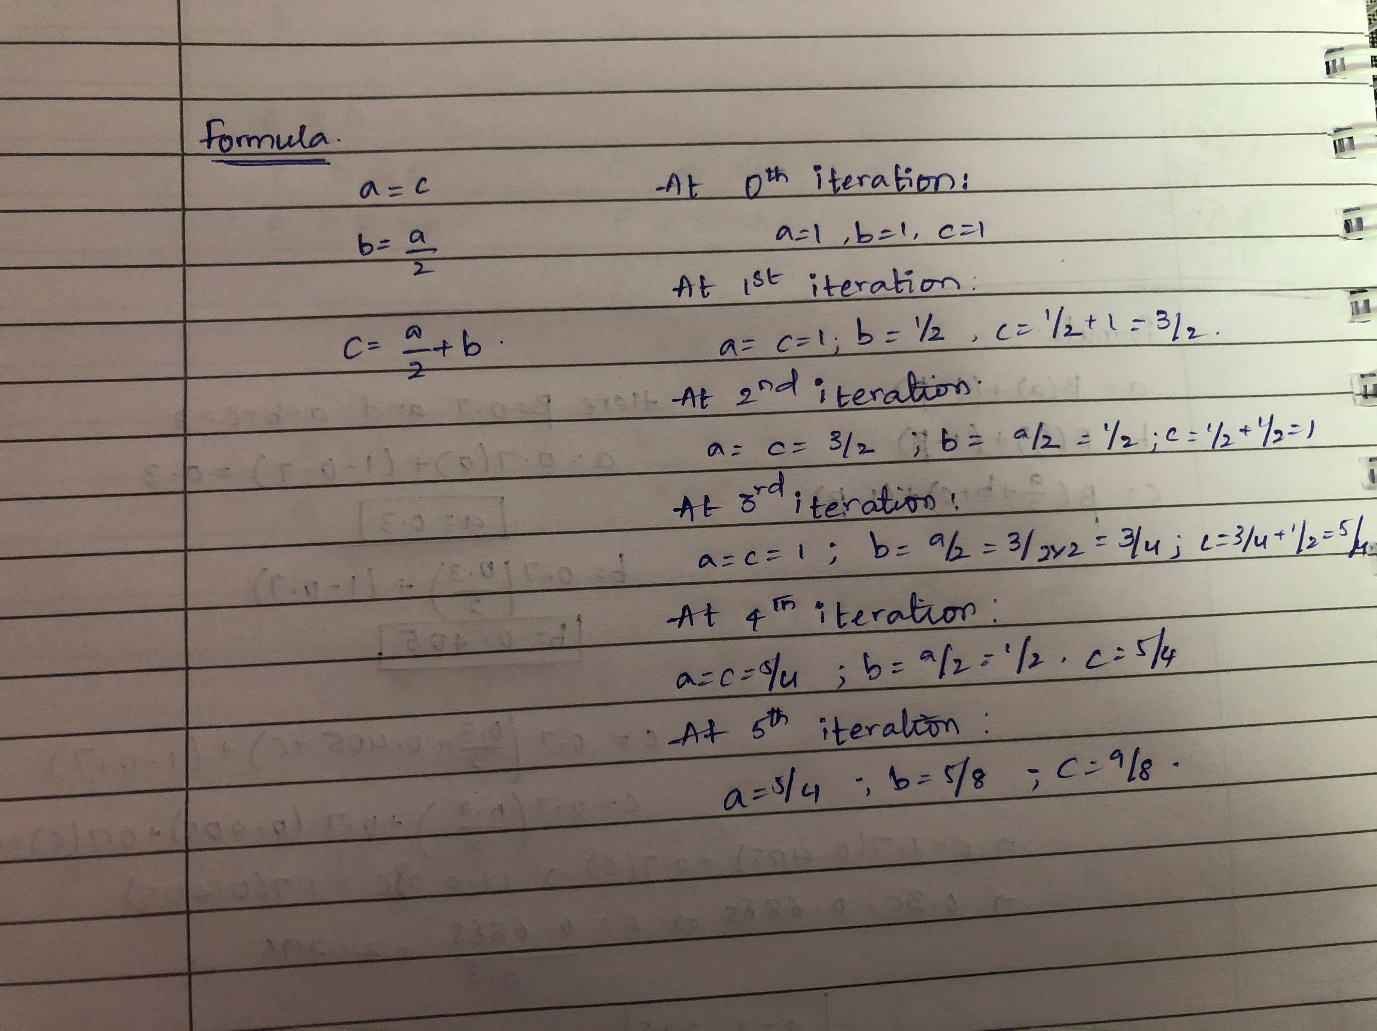 Formula.
a = c
b = a/2
c = a/2 + b.
At 0th iteration:
a=1, b=1, c=1
At 1st iteration:
a = c=1; b = 1/2, c = 1/2 + 1 = 3/2.
At 2nd iteration:
a = c = 3/2 ; b = a/2 = 1/2 ; c = 1/2 + 1/2 = 1
At 3rd iteration:
a = c = 1 ; b = a/2 = 3/2x2 = 3/4 ; c = 3/4 + 1/2 = 5/4.
At 4th iteration:
a = c = 5/4 ; b = a/2 = 1/2. c = 5/4
At 5th iteration:
a = 5/4 ; b = 5/8 ; c = 9/8.